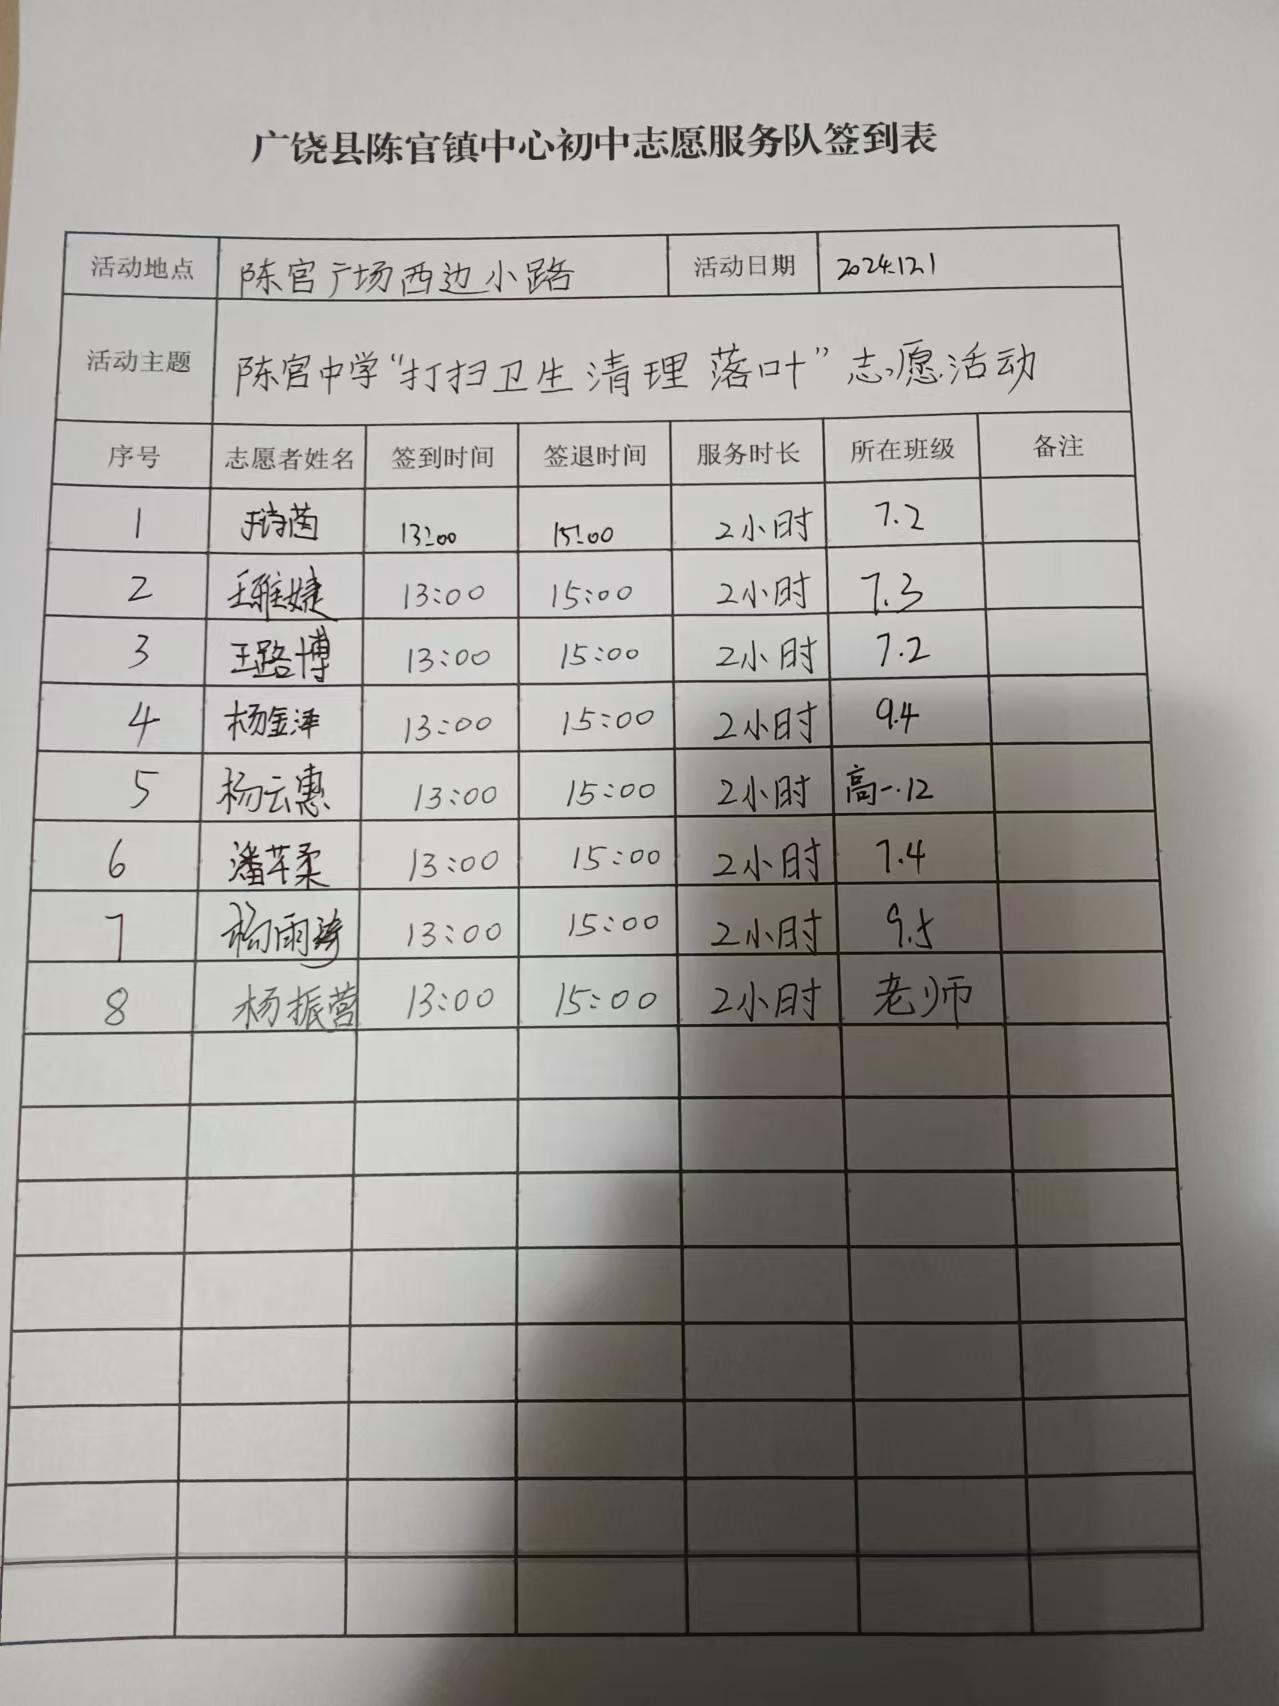 广饶县陈官镇中心初中志愿服务队签到表
活动地点 陈官广场西边小路 活动日期 2024.12.1
活动主题 陈官中学“打扫卫生清理落叶”志愿活动
序号 志愿者姓名 签到时间 签退时间 服务时长 所在班级 备注
1 13:00 15:00 2小时 7.2
2 王雅婕 13:00 15:00 2小时 7.3
3 王路博 13:00 15:00 2小时 7.2
4 杨金泽 13:00 15:00 2小时 9.4
5 杨云惠 13:00 15:00 2小时 高一.12
6 潘芊柔 13:00 15:00 2小时 7.4
7 杨雨 13:00 15:00 2小时 9.5
8 杨振营 13:00 15:00 2小时 老师